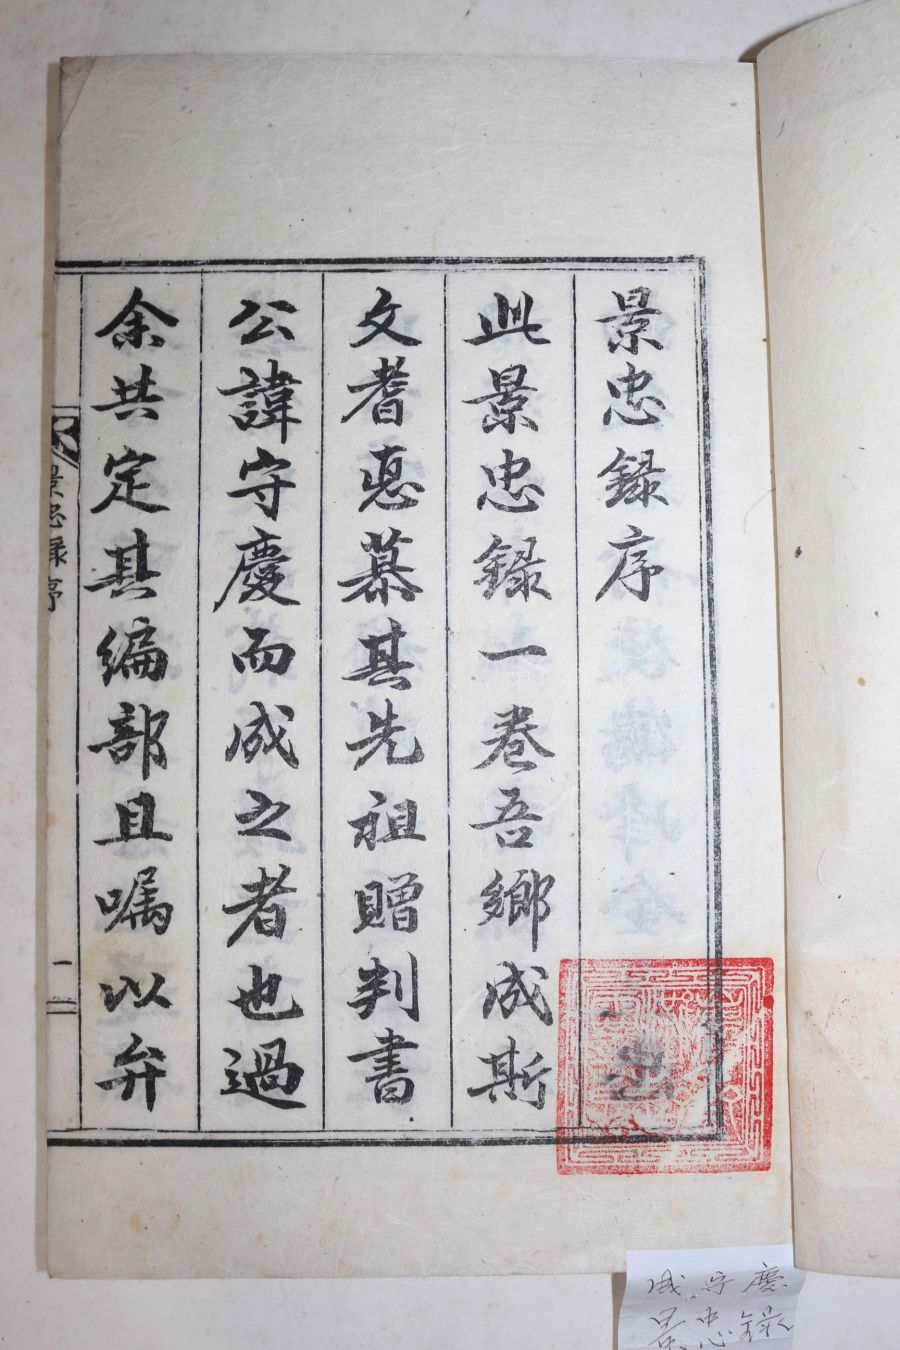 景忠錄序
此景忠錄一卷吾鄉成斯
文耆悳慕其先祖贈判書
公諱守慶而成之者也過
余共定其編部且嘱以弁
景忠錄序
一
成守慶
景忠錄